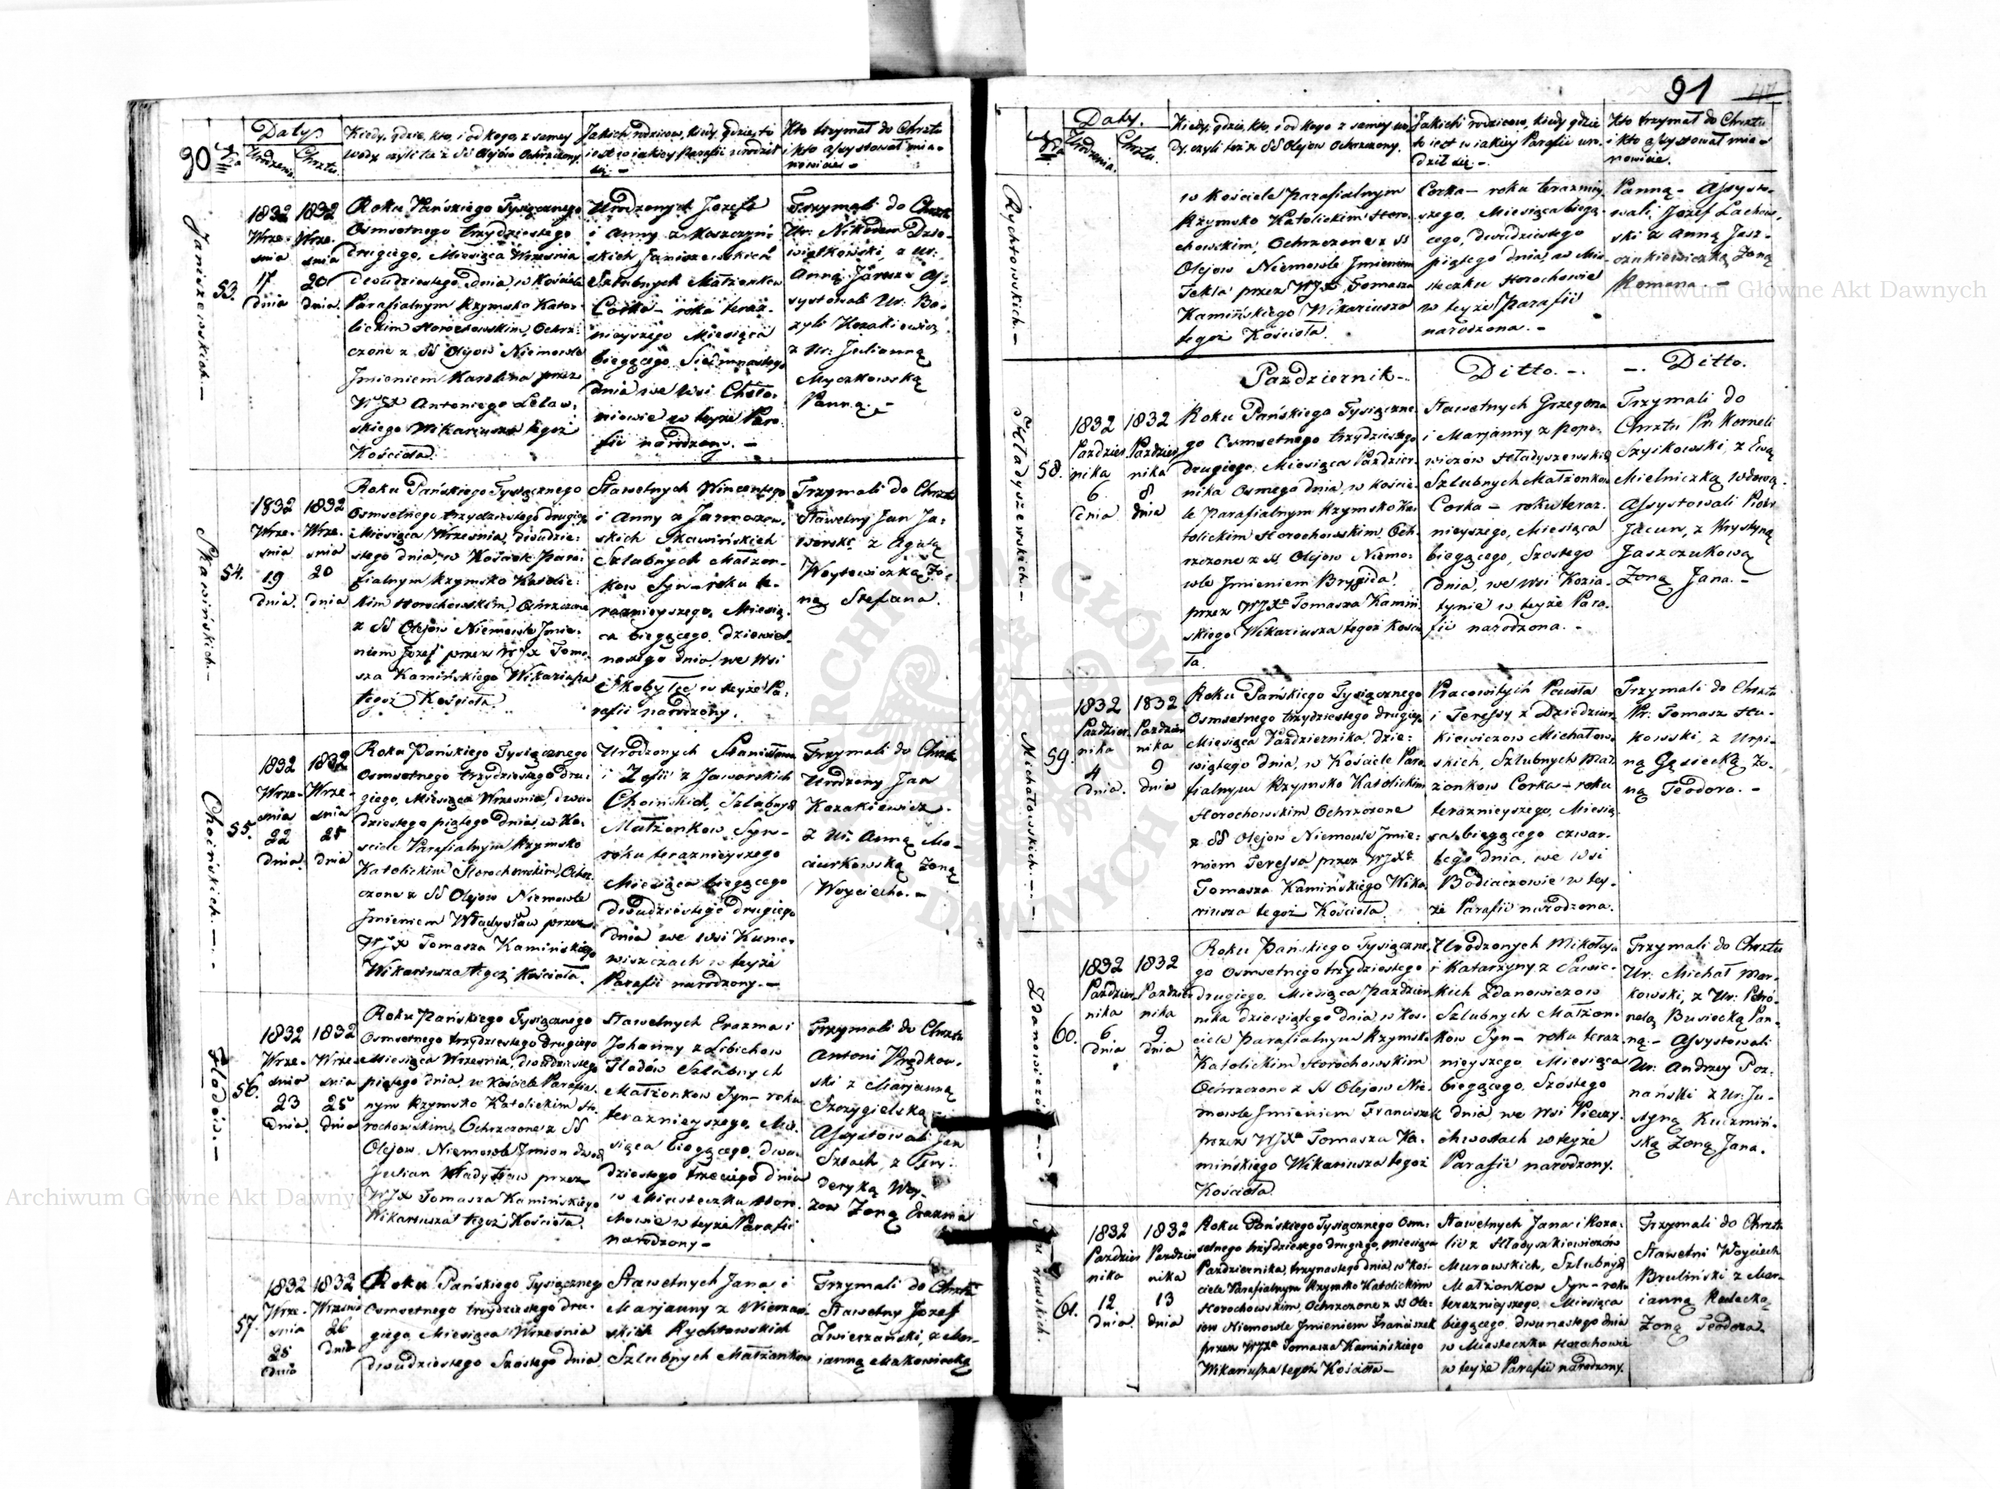 90
Daty
Nro
Urodzenia
Chrztu
Kiedy, gdzie, kto, i od kogo, z samey
wody, czyli też z SS Olejów Ochrzczony
Jakich rodziców, kiedy, gdzie, to
iest w iakiey Parafii urodził
się. –
Kto trzymał do Chrztu
i kto assystował mia-
nowicie. –
Janiszewskich. –
53.
1832
Wrze-
śnia
17
dnia
1832
Wrze-
śnia
20
dnia.
Roku Pańskiego Tysiącznego
Osmsetnego trzydziestego
drugiego, Miesiąca Września
dwudziestego dnia, w Kościele
Parafialnym Rzymsko Kato-
lickim Horochowskim, Ochrz-
czone z SS Olejow Niemowle
Jmieniem Karolina przez
WJX Antoniego
skiego Wikariusza tegoż
Kościoła.
Urodzonych Jozefa
i Anny z
skich Janiszewskich
Szlubnych Małżonkow
Corka – roku teraz-
nieyszego Miesiąca
biegącego Siedmnastego
dnia we Wsi
w teyże Para-
fii narodzona. –
Trzymali do Chrztu
Ur. Nikodem
z Ur.
Anną As-
systowali Ur. Ba-
zyli Kozakiewicz
z Ur. Julianną
Myczkowską
Panną. –
Skawińskich. –
54.
1832
Wrze-
śnia
19
dnia.
1832
Wrze-
śnia
20
dnia
Roku Pańskiego Tysiącznego
Osmsetnego trzydziestego drugiego
Miesiąca Września, dwudzie-
stego dnia, w Kościele Para-
fialnym Rzymsko Katolic-
kim Horochowskim, Ochrzczone
z SS Olejow Niemowle Jmie-
niem Jozef przez WJX Toma-
sza Kamińskiego Wikariusza
tegoż Kościoła.
Sławetnych Wincentego
i Anny z Jaroszew-
skich Skawińskich
Szlubnych Małżon-
kow Syn – roku te-
raznieyszego, Miesią-
ca biegącego, dziewięt-
nastego dnia, we Wsi
w teyże Pa-
rafii narodzony.
Trzymali do Chrztu
Sławetny Jan Ja-
z Agatą
Woytowiczką Żo-
ną Stefana.
Choińskich. –
55.
1832
Wrze-
śnia
22
dnia.
1832
Wrze-
śnia
25
dnia
Roku Pańskiego Tysiącznego
Osmsetnego trzydziestego dru-
giego, Miesiąca Września, dwu-
dziestego piątego dnia, w Ko-
ściele Parafialnym Rzymsko
Katolickim Horochowskim, Ochrz-
czone z SS Olejow Niemowle
Jmieniem Władysław przez
WJX Tomasza Kamińskiego
Wikariusza tegoż Kościoła.
Urodzonych Stanisława
i Zofii z Jaworskich
Choińskich, Szlubnych
Małżonkow, Syn –
roku teraznieyszego
Miesiąca biegącego
dwudziestego drugiego
dnia we Wsi
w teyże
Parafii narodzony. –
Trzymali do Chrztu
Urodzony Jan
Kozakiewicz
z Ur. Anną Ma-
ciurkowską Żoną
Woyciecha. –
56.
1832
Wrze-
śnia
23
dnia.
1832
Wrze-
śnia
25
dnia
Roku Pańskiego Tysiącznego
Osmsetnego trzydziestego drugiego
Miesiąca Września, dwudziestego
piątego dnia, w Kościele Parafial-
nym Rzymsko Katolickim Ho-
rochowskim, Ochrzczone z SS
Olejow Niemowle Jmion dwoch
Julian Władysław przez
WJX Tomasza Kamińskiego
Wikariusza tegoż Kościoła.
Sławetnych Erazma i
Johanny z Libichow
Szlubnych
Małżonkow Syn – roku
teraznieyszego, Mie-
siąca biegącego, dwu-
dziestego trzeciego dnia
w Miasteczku Horo-
chowie w teyże Parafii
narodzony –
Trzymali do Chrztu
Antoni
ski z Marjanną
Assystowali Jan
z Fry-
deryką
Żoną Erazma
57.
1832
Wrze-
śnia
25
dnia
1832
Września
26
dnia
Roku Pańskiego Tysiącznego
Osmsetnego trzydziestego dru-
giego, Miesiąca Września
dwudziestego Szostego dnia,
Sławetnych Jana i
Marjanny z
skich Rychtowskich
Szlubnych Małżonkow
Trzymali do Chrztu
Sławetny Jozef
Zwierzański, z Mar-
ianną Makowiecką
91
Daty.
Nro
Urodzenia.
Chrztu.
Kiedy, gdzie, kto, i od kogo z samey wo-
dy, czyli też z SS Olejow Ochrzczony.
Jakich rodziców, kiedy, gdzie
to iest w iakiey Parafii uro-
dził się. –
Kto trzymał do Chrztu
i kto assystował mia-
nowicie.
Rychtowskich. –
w Kościele Parafialnym
Rzymsko Katolickim Horo-
chowskim, Ochrzczone z SS
Olejow Niemowle Jmieniem
Tekla przez WJX Tomasza
Kamińskiego Wikariusza
tegoż Kościoła.
Corka – roku terazniey-
szego, Miesiąca biegą-
cego, dwudziestego
piątego dnia, w Mia-
steczku Horochowie
w teyże Parafii
narodzona. –
Panną – Assysto-
wali Jozef Lachow-
ski z Anną Jasz-
czukiewiczką Żoną
Romana. –
Pazdziernik –
Ditto. –
– Ditto.
Hładyszewskich. –
58.
1832
Pazdzier-
nika
6
dnia
1832
Pazdzier-
nika
8
dnia
Roku Pańskiego Tysiączne-
go Osmsetnego trzydziestego
drugiego, Miesiąca Pazdzier-
nika Osmego dnia, w Koście-
le Parafialnym Rzymsko Ka-
tolickim Horochowskim, Och-
rzczone z SS. Olejow Niemo-
wle Jmieniem Brygida
przez WJXa Tomasza Kamiń-
skiego Wikariusza tegoż Kościo-
ła.
Sławetnych Grzegorza
i Marjanny z Popo-
wiczów Hładyszewskich
Szlubnych Małżonkow
Corka – roku teraz-
nieyszego, Miesiąca
biegącego, Szostego
dnia, we Wsi Kozia-
tynie w teyże Para-
fii narodzona. –
Trzymali do
Chrztu Pr. Korneli
Szysikowski, z Ewą
Mielniczką wdową.
Assystowali Piotr
Jacun, z Krystyną
Jaszczukową
Żoną Jana. –
Michałowskich. – –
59.
1832
Pazdzier-
nika
4
dnia.
1832.
Pazdzier-
nika
9
dnia
Roku Pańskiego Tysiącznego
Osmsetnego trzydziestego drugiego
Miesiąca Pazdziernika, dzie-
wiątego dnia, w Kościele Para-
fialnym Rzymsko Katolickim
Horochowskim, Ochrzczone
z SS Olejow Niemowle Jmie-
niem Teressa przez WJXa
Tomasza Kamińskiego Wika-
riusza tegoż Kościoła.
Pracowitych Pawła
i Teressy z Dziedziur-
kiewiczow Michałow-
skich, Szlubnych Mał-
żonkow Corka – roku
teraznieyszego, Miesią-
ca biegącego czwar-
tego dnia, we Wsi
Bodiaczowie w tey-
że Parafii narodzona.
Trzymali do Chrztu
Pr. Tomasz Hu-
kowski, z Urpi-
ną Gąsiecką Żo-
ną Teodora. –
Zdanowiczów
60.
1832
Pazdzier-
nika
6
dnia
1832
Pazdzier-
nika
9
dnia
Roku Pańskiego Tysiączne-
go Osmsetnego trzydziestego
drugiego, Miesiąca Pazdzier-
nika dziewiątego dnia, w Koś-
ciele Parafialnym Rzymsko
Katolickim Horochowskim
Ochrzczone z SS Olejow Nie-
mowle Jmieniem Franciszek
przez WJXa Tomasza Ka-
mińskiego Wikariusza tegoż
Kościoła.
Urodzonych Mikołaja
i Katarzyny z Sawic-
kich Zdanowiczow
Szlubnych Małżon-
kow Syn – roku teraz-
nieyszego Miesiąca
biegącego, Szostego
dnia we Wsi Pieczy-
chwostach w teyże
Parafii narodzony.
Trzymali do Chrztu
Ur. Michał Mar-
kowski, z Ur. Petro-
nelą Busiecką Pan-
ną. – Assystowali
Ur. Andrzey Poz-
nański z Ur. Ju-
styną Kuzmiń-
ską Żoną Jana.
61.
1832
Pazdzier-
nika
12
dnia
1832
Pazdzier-
nika
13
dnia
Roku Pańskiego Tysiącznego Osm-
setnego trzydziestego drugiego, Miesiąca
Pazdziernika, trzynastego dnia, w Koś-
ciele Parafialnym Rzymsko Katolickim
Horochowskim, Ochrzczone z SS Ole-
jow Niemowle Jmieniem Franciszek
przez WJXa Tomasza Kamińskiego
Wikariusza tegoż Kościoła –
Sławetnych Jana i Roza-
lii z Hładyszkiewiczow
Murowskich, Szlubnych
Małżonkow Syn – roku
teraznieyszego, Miesiąca
biegącego, dwunastego dnia
w Miasteczku Horochowie
w teyże Parafii narodzony.
Trzymali do Chrztu
Sławetni Woyciech
Bruliński z Mar-
ianną
Żoną Teodora.
Archiwum Główne Akt Dawnych
Archiwum Główne Akt Dawnych
ARCHIWUM GŁÓWNE
AKT DAWNYCH